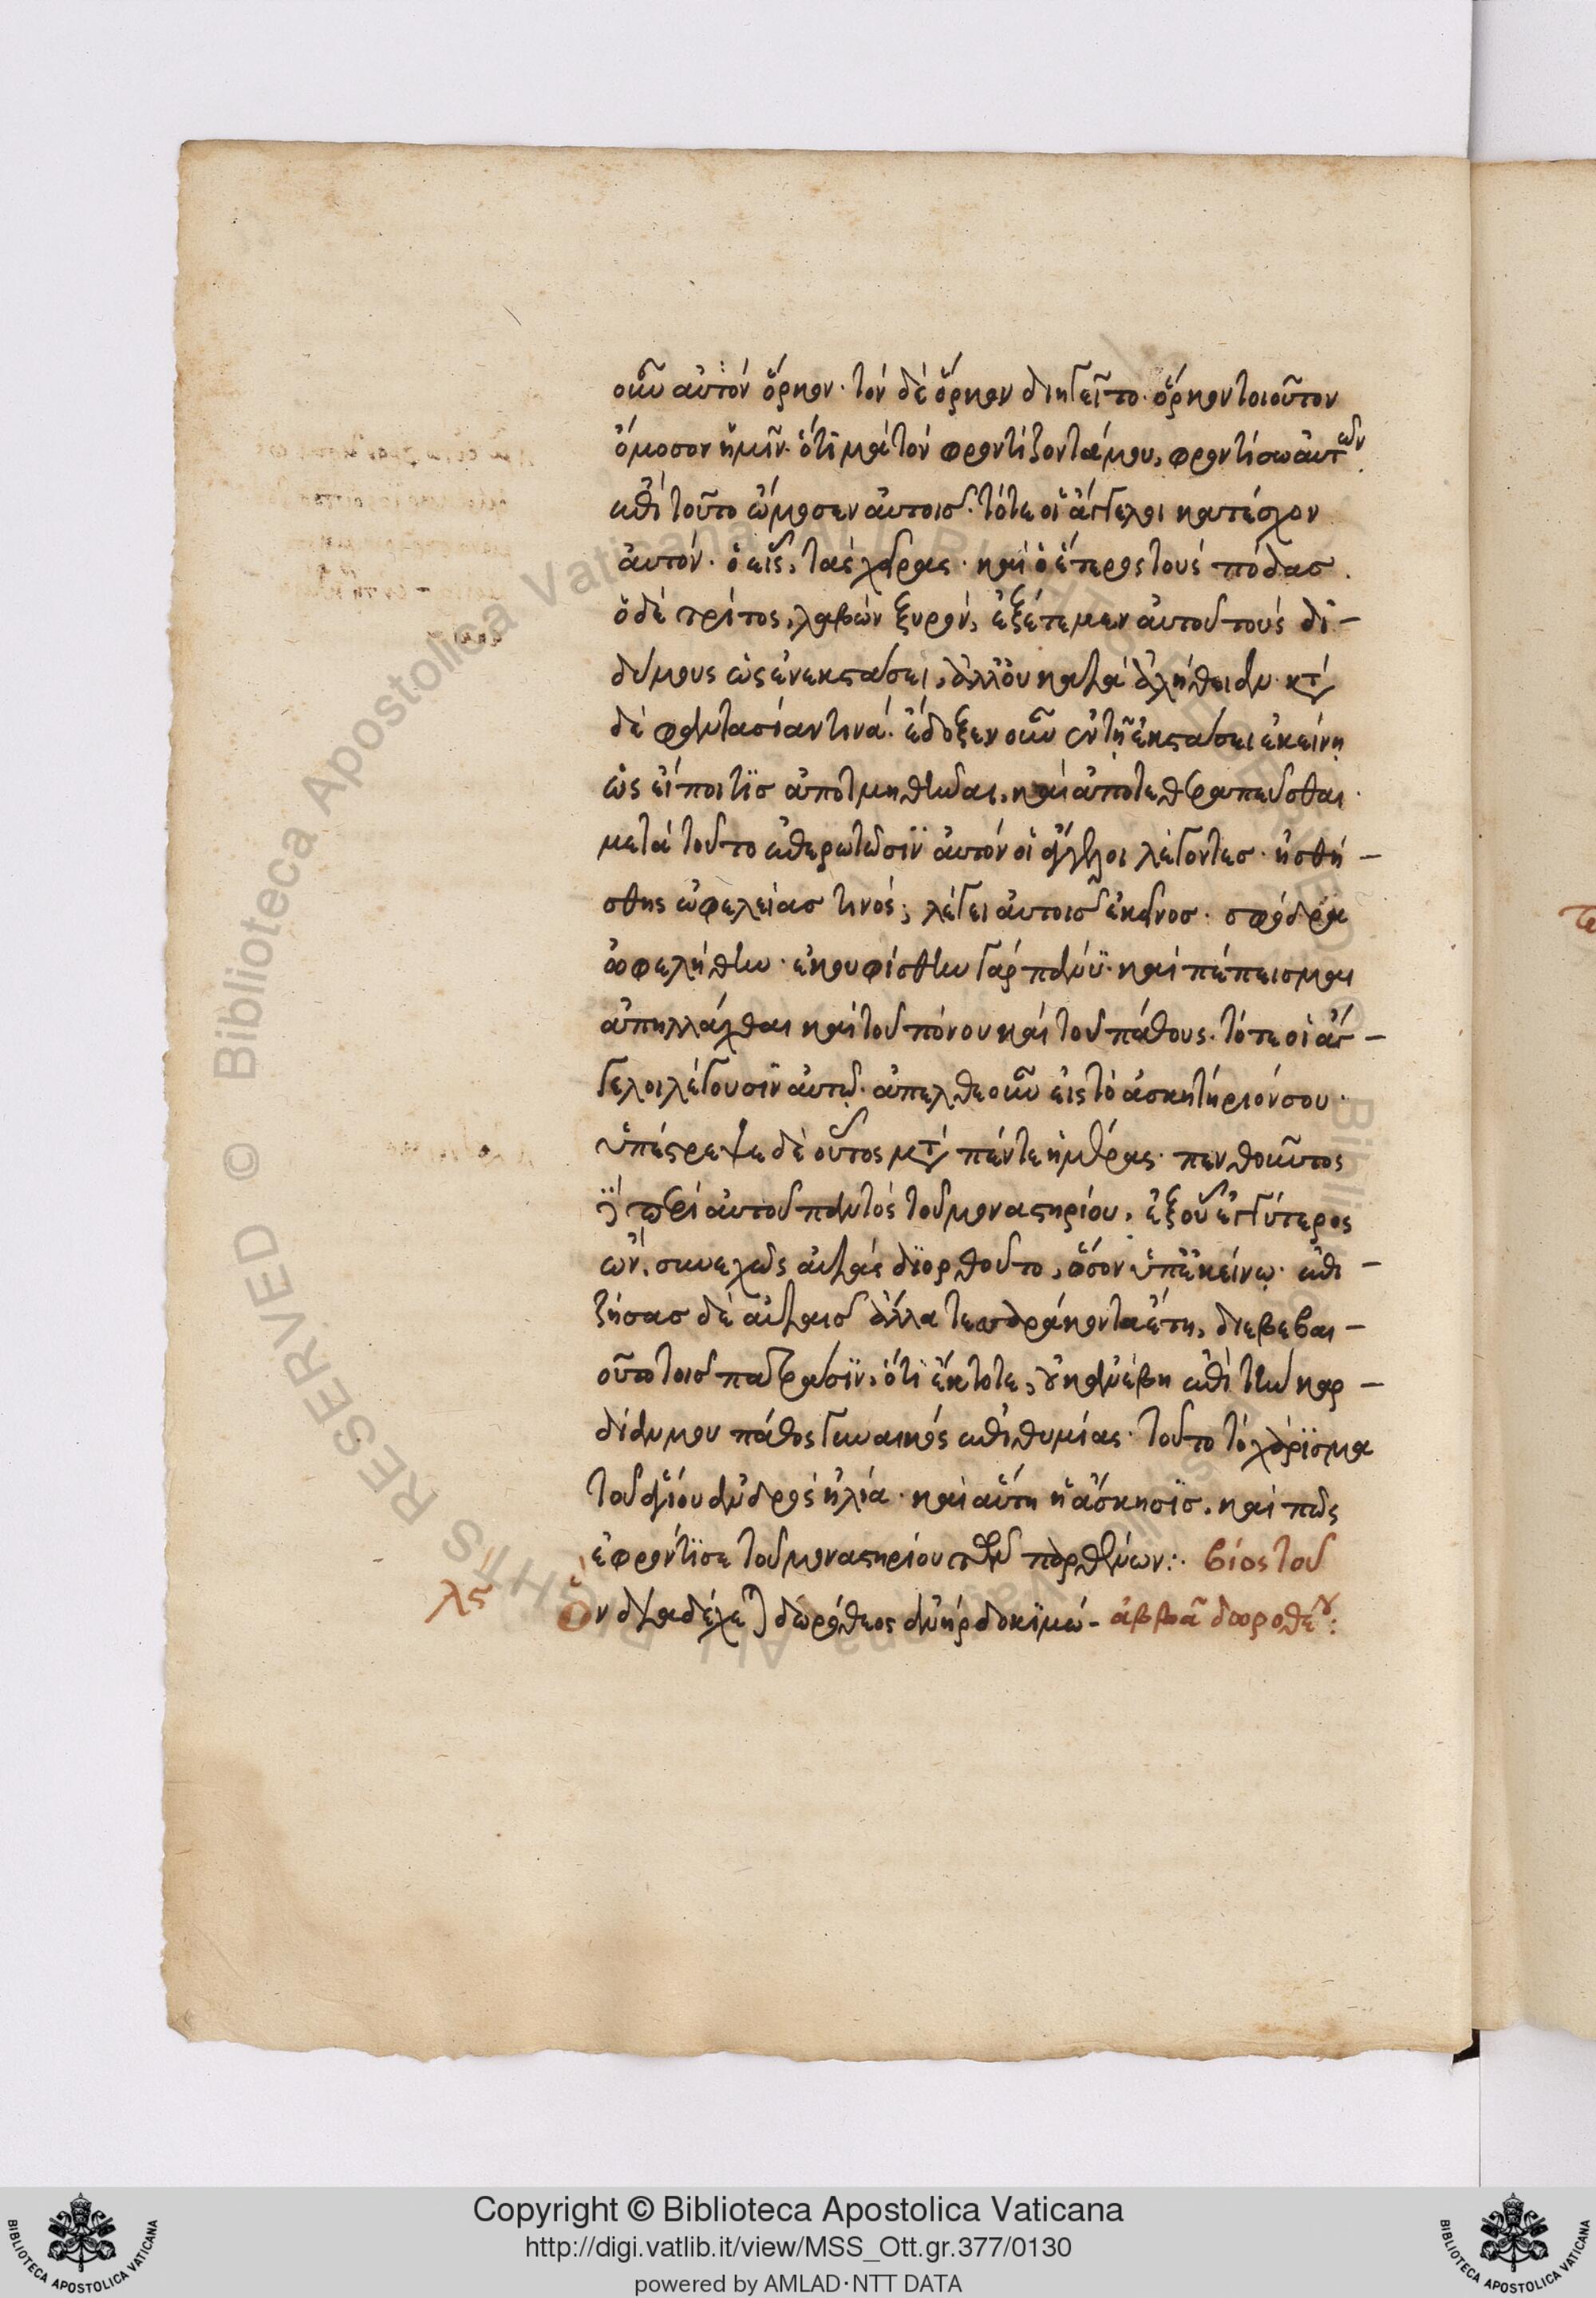 οὖν αὐτὸν ὅρκον· τὸν δὲ ὅρκον διηγεῖτο· ὅρκον τοιοῦτον
ὄμοσον ἡμῖν· ὅτι μὰ τὸν φροντίζοντά μου, φροντίσω αὐτῶν
ἐπὶ τοῦτο ὤμοσεν αὐτοῖς· τότε οἱ ἄγγελοι κατέσχον
αὐτόν· ὁ εἷς, τὰς χεῖρας· καὶ ὁ ἕτερος τοὺς πόδας.
ὁ δὲ τρίτος, λαβὼν ξυρὸν, ἐξέτεμεν αὐτοῦ τοὺς δι-
δύμους ὡς ἐν ἐκστάσει, ἀλλ' οὐ κατὰ ἀλήθειαν· κατὰ
δὲ φαντασίαν τινά· ἔδοξεν οὖν ἐν τῇ ἐκστάσει ἐκείνῃ
ὡς εἴποι τις ἀποτμηθῆναι, καὶ ἀποτεθεραπεῦσθαι·
μετὰ τοῦτο ἐπερωτῶσιν αὐτὸν οἱ ἄγγελοι λέγοντες· ἠσθή-
σθης ὠφελείας τινός; λέγει αὐτοῖς ἐκεῖνος· σφόδρα
ὠφελήθην· ἐκουφίσθην γὰρ πάνυ· καὶ πέπεισμαι
ἀπηλλάχθαι καὶ τοῦ πόνου καὶ τοῦ πάθους· τότε οἱ ἄγ-
γελοι λέγουσιν αὐτῷ· ἄπελθε οὖν εἰς τὸ ἀσκητήριόν σου·
ὑπέστρεψε δὲ οὗτος μετὰ πέντε ἡμέρας· πενθοῦντος
περὶ αὐτοῦ παντὸς τοῦ μοναστηρίου, ἐξ οὗ ἐγγύτερος
ὢν, συνεχῶς αὐτὰς διορθοῦτο, ὅσον ὑπ' ἐκείνῳ· ἐπι-
ζήσας δὲ αὐταῖς ἄλλα τεσσαράκοντα ἔτη, διεβεβαι-
οῦτο τοῖς πατράσιν, ὅτι ἔκτοτε, οὐκ ἀνέβη ἐπὶ τὴν καρ-
δίαν μου πάθος γυναικὸς ἐπιθυμίας· τοῦτο τὸ χάρισμα
τοῦ ἁγίου ἀνδρὸς ἠλία· καὶ αὕτη ἡ ἄσκησις, καὶ πῶς
ἐφρόντισε τοῦ μοναστηρίου τῶν παρθένων:· βίος τοῦ
λς Ὃν διαδέχε) δωρόθεος ἀνὴρ δοκιμώ- ἀββᾶ δωροθέου:
Copyright © Biblioteca Apostolica Vaticana
http://digi.vatlib.it/view/MSS_Ott.gr.377/0130
powered by AMLAD·NTT DATA